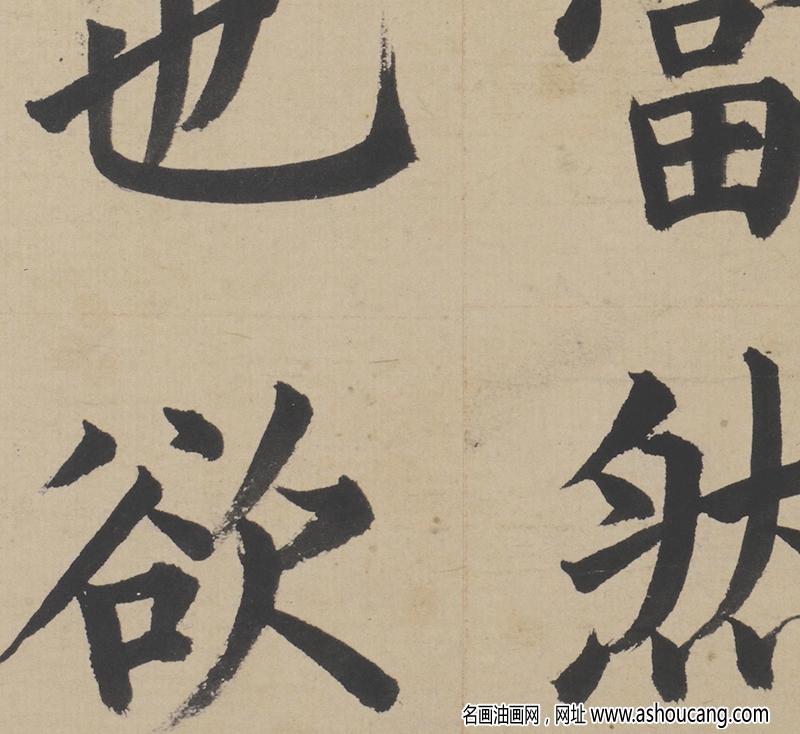 當然
也欲
名画油画网，网址 www.ashoucang.com